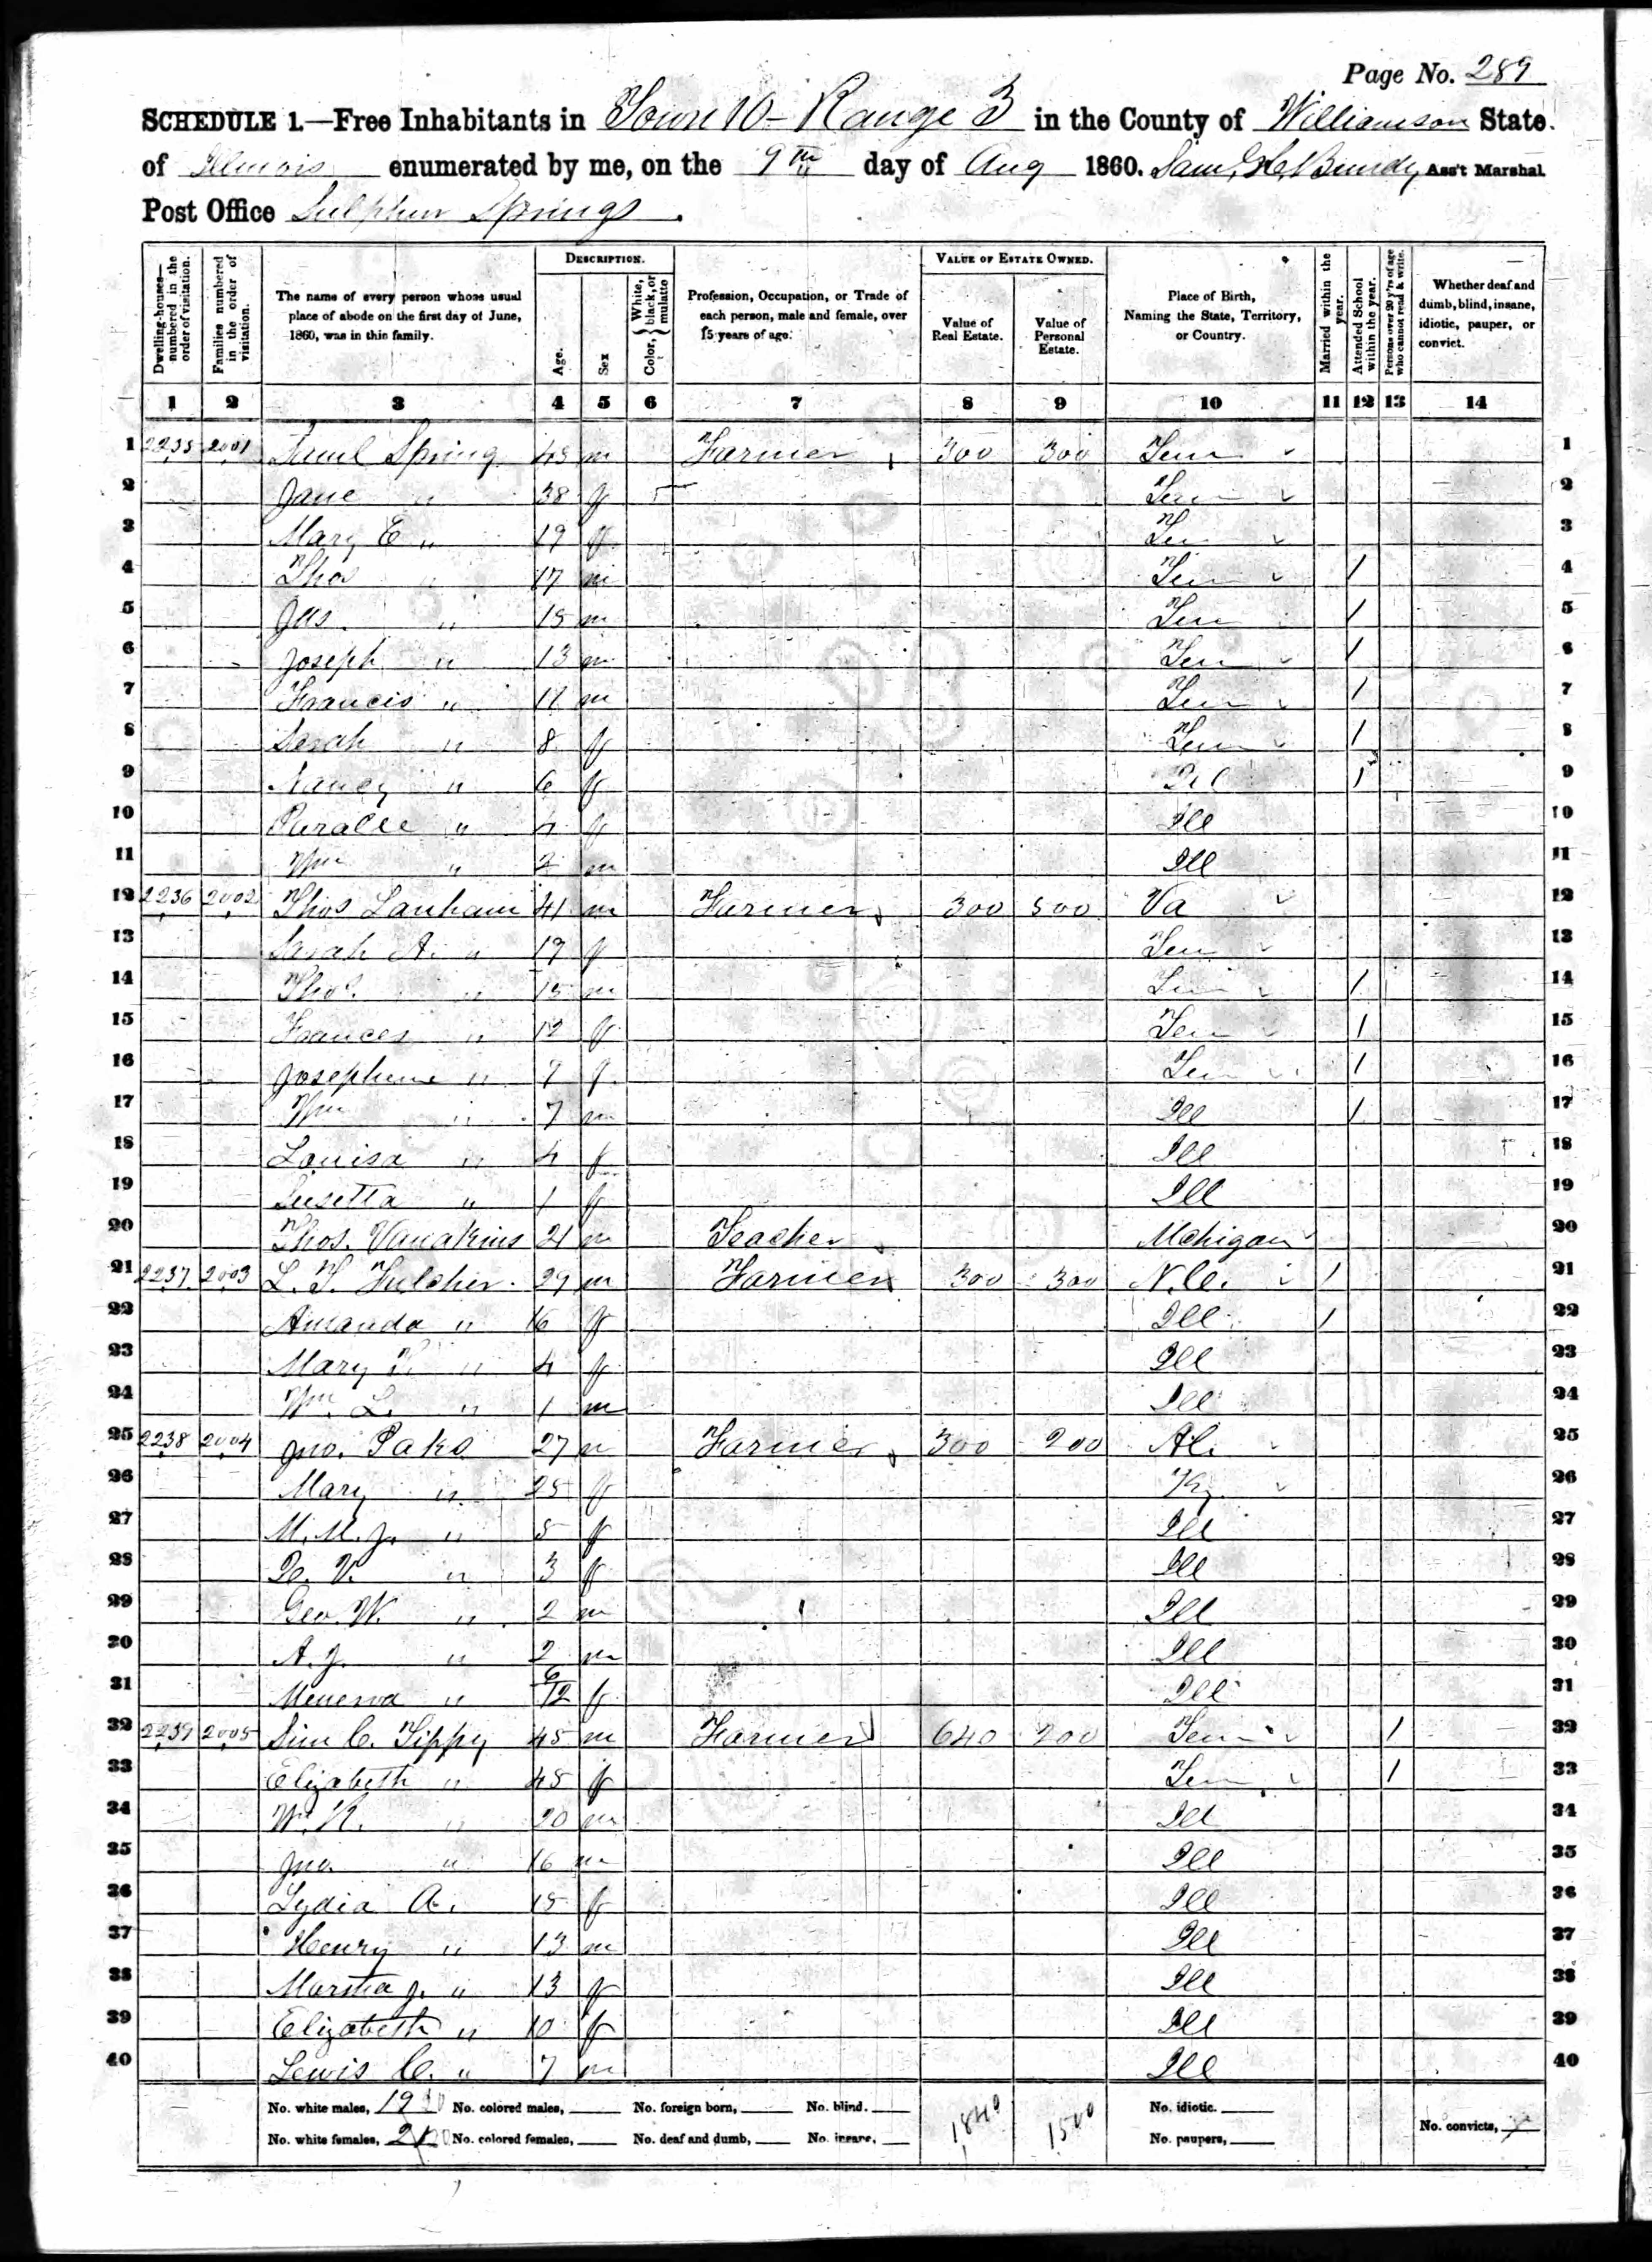 Page No. 289
SCHEDULE 1.—Free Inhabitants in Town 10 - Range 3 in the County of Williamson State
of Illinois enumerated by me, on the 9th day of Aug 1860. Ass't Marshal
Post Office Sulphur Springs.
DESCRIPTION. VALUE OF ESTATE OWNED.
Dwelling-houses—numbered in the order of visitation. Families numbered in the order of visitation. The name of every person whose usual place of abode on the first day of June, 1860, was in this family. Age. Sex Color, White, black, or mulatto Profession, Occupation, or Trade of each person, male and female, over 15 years of age. Value of Real Estate. Value of Personal Estate. Place of Birth, Naming the State, Territory, or Country. Married within the year. Attended School within the year. Persons over 20 y'rs of age who cannot read & write. Whether deaf and dumb, blind, insane, idiotic, pauper, or convict.
1 2 3 4 5 6 7 8 9 10 11 12 13 14
1 2235 2001 Spring m Farmer 300 300 Tenn 1
2 Jane " 38 f Tenn 2
3 Mary E " 19 f Ten 3
4 Thos " 17 m Ten / 4
5 Jas. " 15 m Ten / 5
6 Joseph " 13 m Ten / 6
7 Francis " 11 m Ten / 7
8 Sarah " 8 f Tenn / 8
9 Nancy " 6 f / 9
10 " 4 f Ill 10
11 Wm " 2 m Ill 11
12 2236 2002 Thos Lanham 41 m Farmer 300 500 Va 12
13 Sarah A. " 19 f Ten 13
14 Thos. " 15 m Ten / 14
15 Frances " 12 f Ten / 15
16 Josephine " 9 f Ten / 16
17 Wm " 7 m Ill / 17
18 Louisa " 4 f Ill 18
19 " 1 f Ill 19
20 Thos. Vanakins 21 m Teacher Mchigan 20
21 2237 2003 L. T. Fulcher 29 m Farmer 300 300 N.C. / 21
22 Amanda " 16 f Ill / 22
23 Mary " 4 f Ill 23
24 Wm. L. " 1 m Ill 24
25 2238 2004 Jno. 27 m Farmer 300 200 Al. 25
26 Mary " 25 f Ky. 26
27 M. M. J. " 5 f Ill 27
28 V. " 3 f Ill 28
29 Geo. W. " 2 m Ill 29
30 A. J. " 2 m Ill 30
31 Menerva " 6/12 f Ill 31
32 2239 2005 Sim C. Tippy 45 m Farmer 640 200 Tenn / 32
33 Elizabeth " 45 f Ten / 33
34 Wm. R. " 20 m Ill 34
35 Jno. " 16 m Ill 35
36 Lydia A. 15 f Ill 36
37 Henry " 13 m Ill 37
38 Martha J. " 13 f Ill 38
39 Elizabeth " 10 f Ill 39
40 Lewis C. " 7 m Ill 40
No. white males, No. colored males, No. foreign born, No. blind. 1840 1500 No. idiotic.
No. white females, No. colored females, No. deaf and dumb, No. insane, No. paupers, No. convicts,